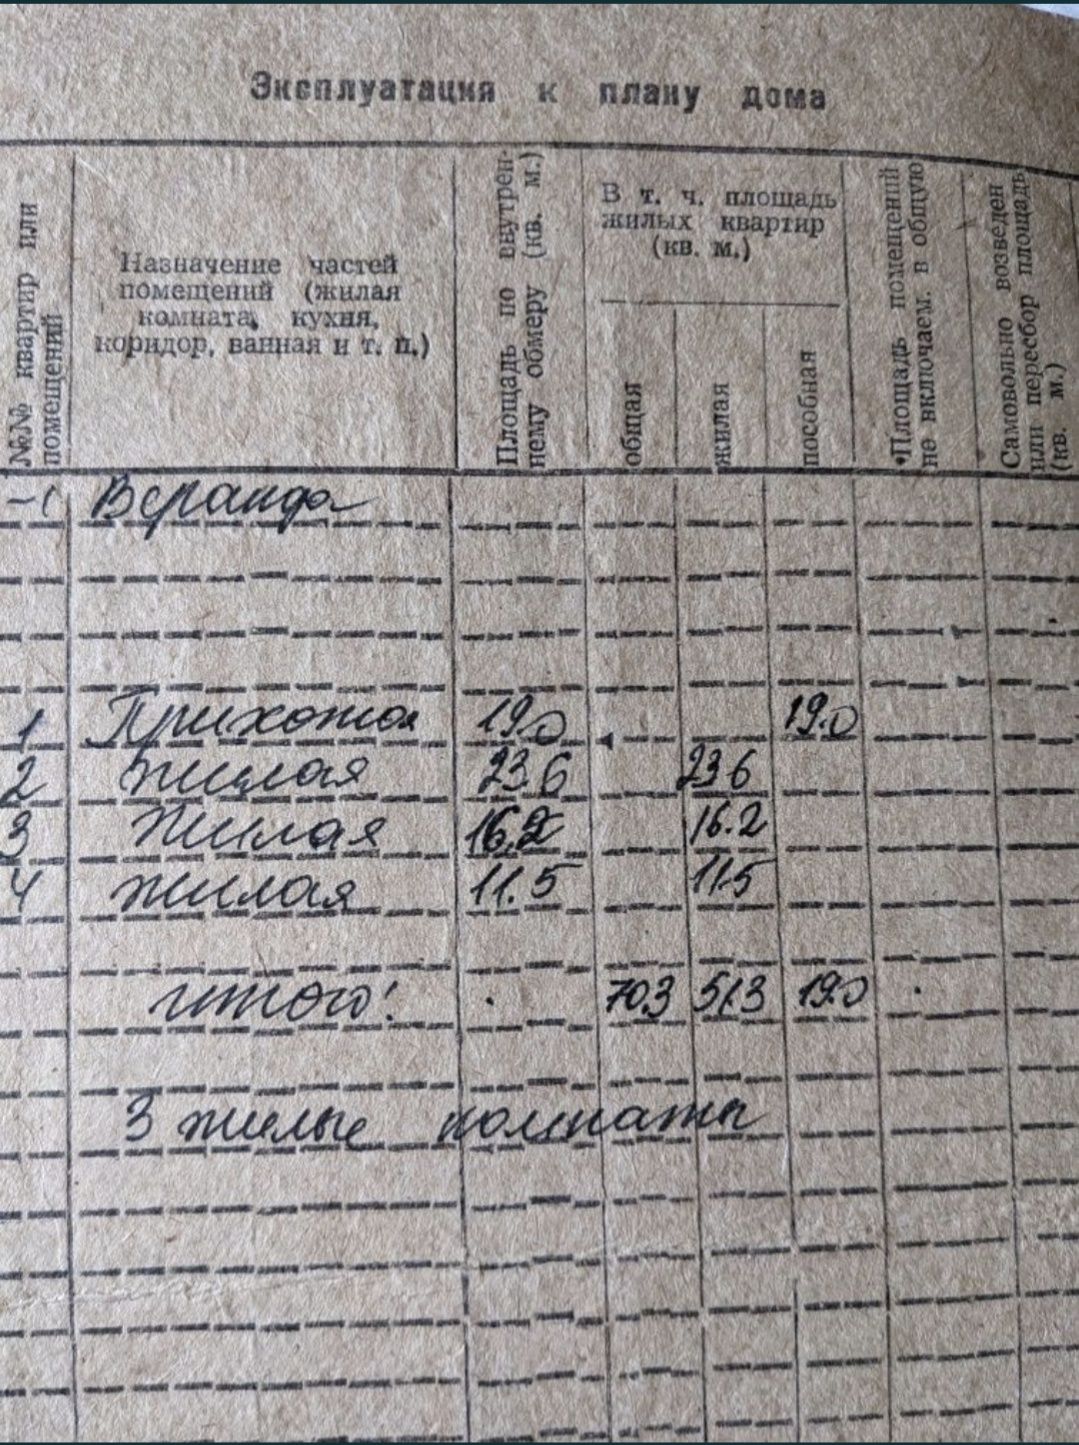 Эксплуатация к плану дома
№№ квартир или помещений
Назначение частей
помещений (жилая
комната, кухня,
коридор, ванная и т. п.)
Площадь по внутрен-
нему обмеру (кв. м.)
В т. ч. площадь
жилых квартир
(кв. м.)
общая
жилая
пособная
•Площадь помещений
не включаем. в общую
Самовольно возведен
или пересбор площадь
(кв. м.)
Веранда
1 Прихожая 19.0 19.0
2 жилая 23.6 23.6
3 жилая 16.2 16.2
4 жилая 11.5 11.5
итого: 70.3 51.3 19.0
3 жилые комнаты